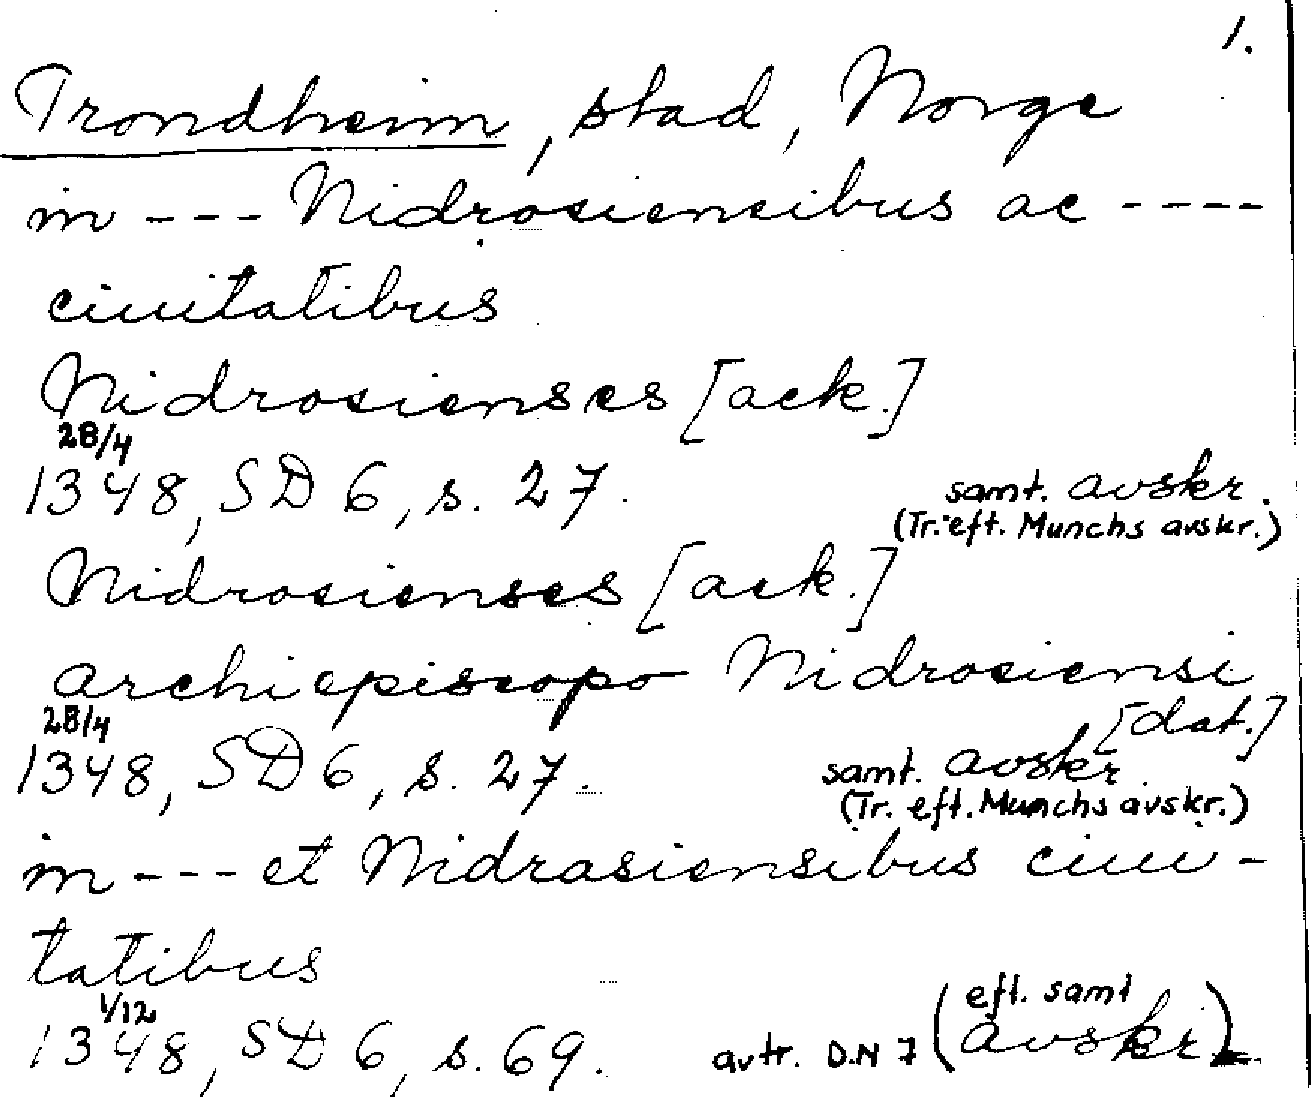 1.
Trondheim, stad, Norge
in --- Nidrosiensibus ac ----
ciuitatibus
Nidrosienses [ack.]
28/4
1348, SD 6, s. 27. samt. avskr.
(Tr. eft. Munchs avskr.)
Nidrosienses [ack.]
archiepiscopo Nidrosiensi
[dat.]
28/4
1348, SD 6, s. 27. samt. avskr.
(Tr. eft. Munchs avskr.)
in --- et Nidrasiensibus ciui-
tatibus
1/12
1348, SD 6, s. 69. avtr. D.N 7 (eft. samt
avskr).